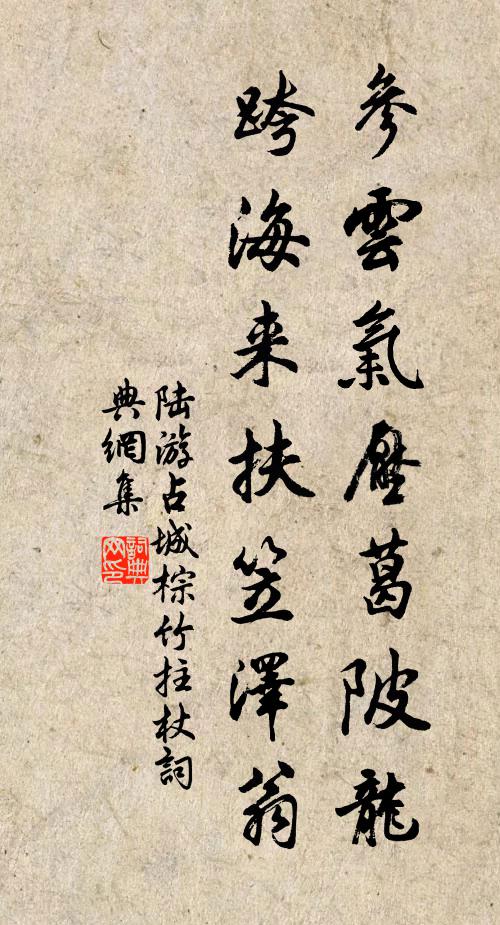 參雲氣壓葛陂龍
跨海来扶笠澤翁
陆游占城棕竹拄杖詞
典網集
詞典
网印